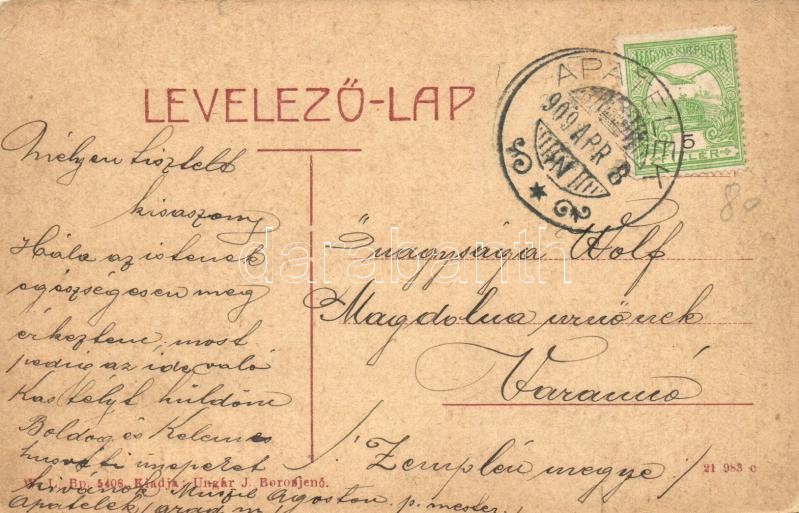 LEVELEZŐ-LAP
MAGYAR KIR. POSTA
5
FILLÉR
APATELEK
909 APR 8
N
80
Mélyen tisztelt
kisaszony
Hála az istenek
egészségesen meg
érkeztem, most
pedig az ide való
Kastélyt küldöm
Boldog és Kelemes
husvéti ünepeket
kivánok Muszil Agoston p. mester
Apatelek /Arad m/
Őnagysága Wolf
Magdolna urnőnek
Varannó
/: Zemplén megye :/
W. L. Bp. 5408 Kiadja: Ungár J. Borosjenő.
21 983 c
darabanth